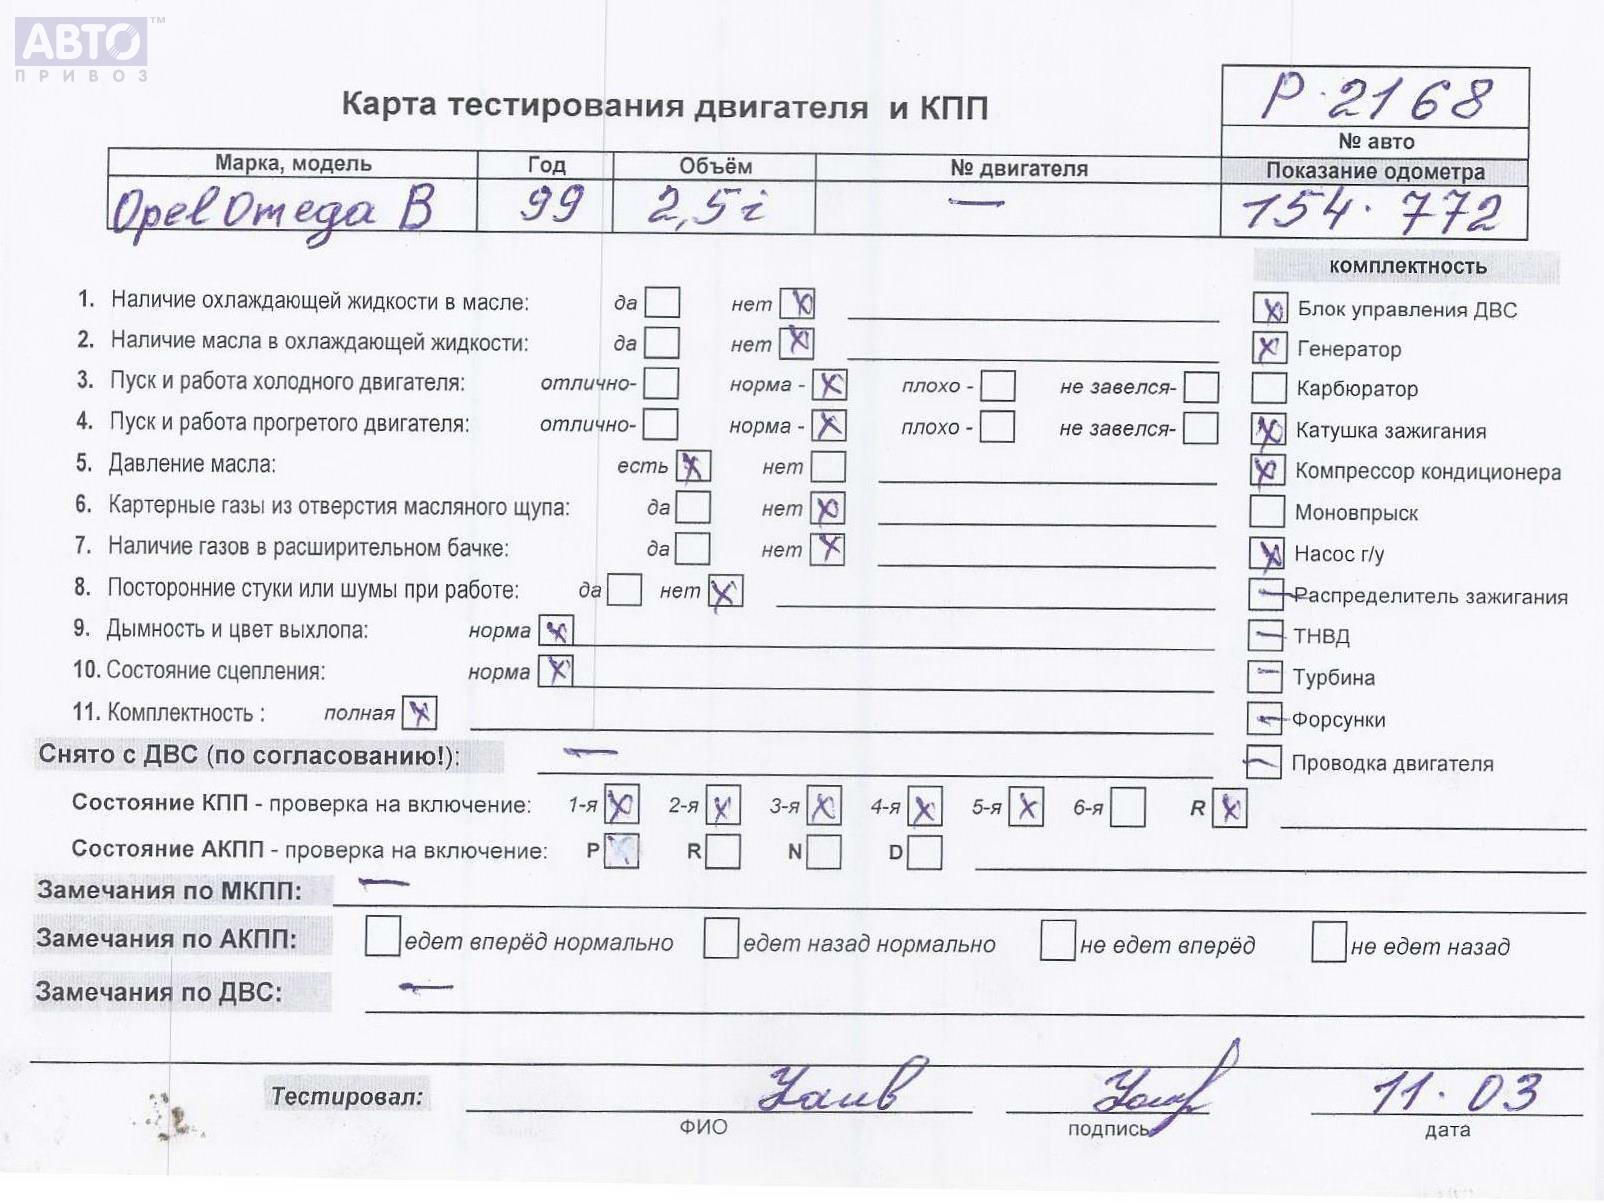 АВТО™
ПРИВОЗ
Карта тестирования двигателя и КПП
Р-2168
№ авто
Марка, модель Год Объём № двигателя Показание одометра
Opel Omega B 99 2,5i — 154.772
комплектность
1. Наличие охлаждающей жидкости в масле: да нет X
2. Наличие масла в охлаждающей жидкости: да нет X
3. Пуск и работа холодного двигателя: отлично- норма - X плохо - не завелся-
4. Пуск и работа прогретого двигателя: отлично- норма - X плохо - не завелся-
5. Давление масла: есть X нет
6. Картерные газы из отверстия масляного щупа: да нет X
7. Наличие газов в расширительном бачке: да нет X
8. Посторонние стуки или шумы при работе: да нет X
9. Дымность и цвет выхлопа: норма X
10. Состояние сцепления: норма X
11. Комплектность : полная X
X Блок управления ДВС
X Генератор
Карбюратор
X Катушка зажигания
X Компрессор кондиционера
Моновпрыск
X Насос г/у
— Распределитель зажигания
— ТНВД
— Турбина
— Форсунки
— Проводка двигателя
Снято с ДВС (по согласованию!): —
Состояние КПП - проверка на включение: 1-я X 2-я X 3-я X 4-я X 5-я X 6-я R X
Состояние АКПП - проверка на включение: P R N D
Замечания по МКПП: —
Замечания по АКПП: едет вперёд нормально едет назад нормально не едет вперёд не едет назад
Замечания по ДВС: —
Тестировал: 11.03
ФИО подпись дата